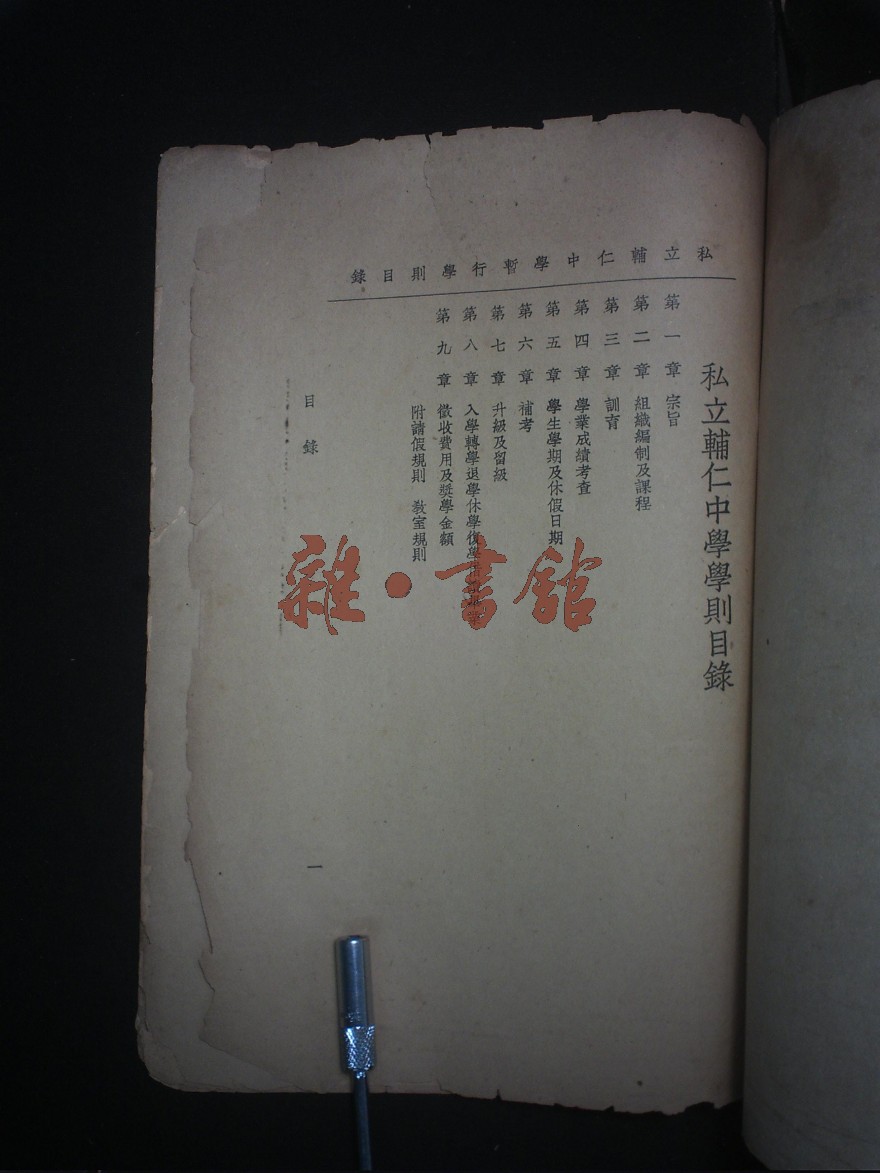 私立輔仁中學暫行學則目錄
私立輔仁中學學則目錄
第一章 宗旨
第二章 組織編制及課程
第三章 訓育
第四章 學業成績考查
第五章 學生學期及休假日期
第六章 補考
第七章 升級及留級
第八章 入學轉學退學休學復學
第九章 徵收費用及獎學金額
附請假規則 教室規則
目錄
一
雜·書館